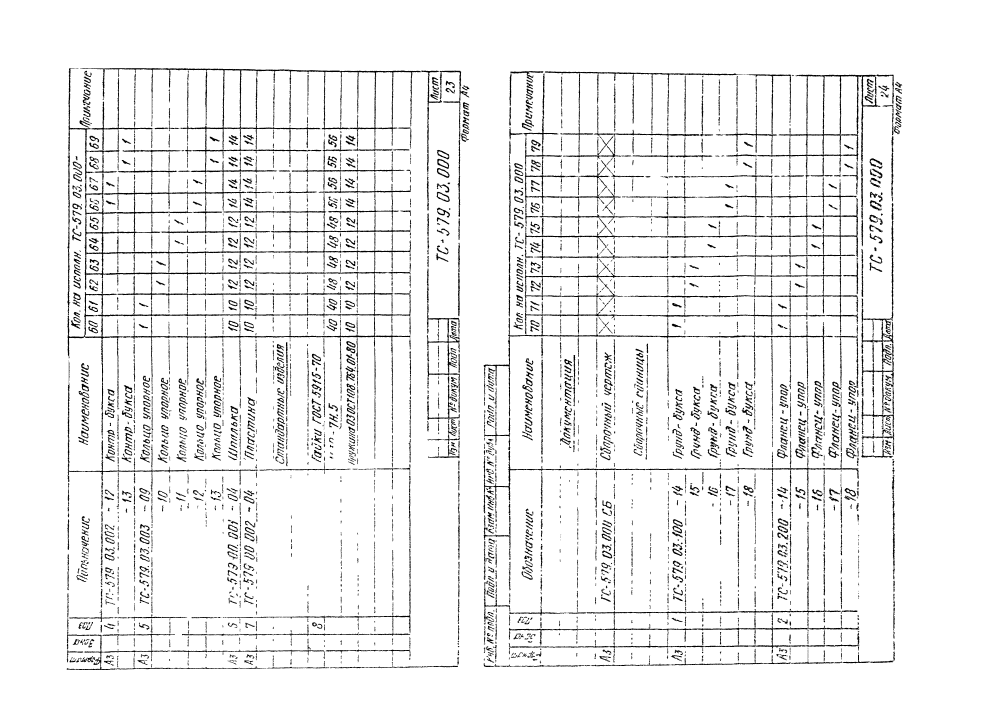 Формат Зона Поз. Обозначение Наименование Кол. на исполн. ТС-579.03.000- Примечание
60 61 62 63 64 65 66 67 68 69
А3 4 ТС-579.03.002 -12 Контр-букса 1 1
-13 Контр-букса 1 1
А3 5 ТС-579.03.003 -09 Кольцо упорное 1 1
-10 Кольцо упорное 1 1
-11 Кольцо упорное 1 1
-12 Кольцо упорное 1 1
-13 Кольцо упорное 1 1
А3 ТС-579.00.001 -04 Шпилька 10 10 12 12 12 12 14 14 14 14
А3 7 ТС-579.00.002 -04 Пластина 10 10 12 12 12 12 14 14 14 14
Стандартные изделия
8 Гайки ГОСТ 5915-70
7Н.5 40 40 48 48 48 48 56 56 56 56
10 10 12 12 12 12 14 14 14 14
Изм Лист № докум. Подп. Дата
ТС-579.03.000
Лист
23
Формат А4
Инв. № подл. Подп. и дата Взам. инв. № Инв. № дубл. Подп. и дата
Поз. Обозначение Наименование Кол. на исполн. ТС-579.03.000 Примечание
70 71 72 73 74 75 76 77 78 79
Документация
А3 ТС-579.03.000 СБ Сборочный чертеж
Сборочные единицы
А3 1 ТС-579.03.100 -14 Грунд-букса 1 1
15 Грунд-букса 1 1
-16 Грунд-букса 1 1
-17 Грунд-букса 1 1
-18 Грунд-букса 1 1
А3 2 ТС-579.03.200 -14 Фланец-упор 1 1
-15 Фланец-упор 1 1
-16 Фланец-упор 1 1
-17 Фланец-упор 1 1
-18 Фланец-упор 1 1
Изм Лист № докум. Подп. Дата
ТС-579.03.000
Лист
24
Формат А4